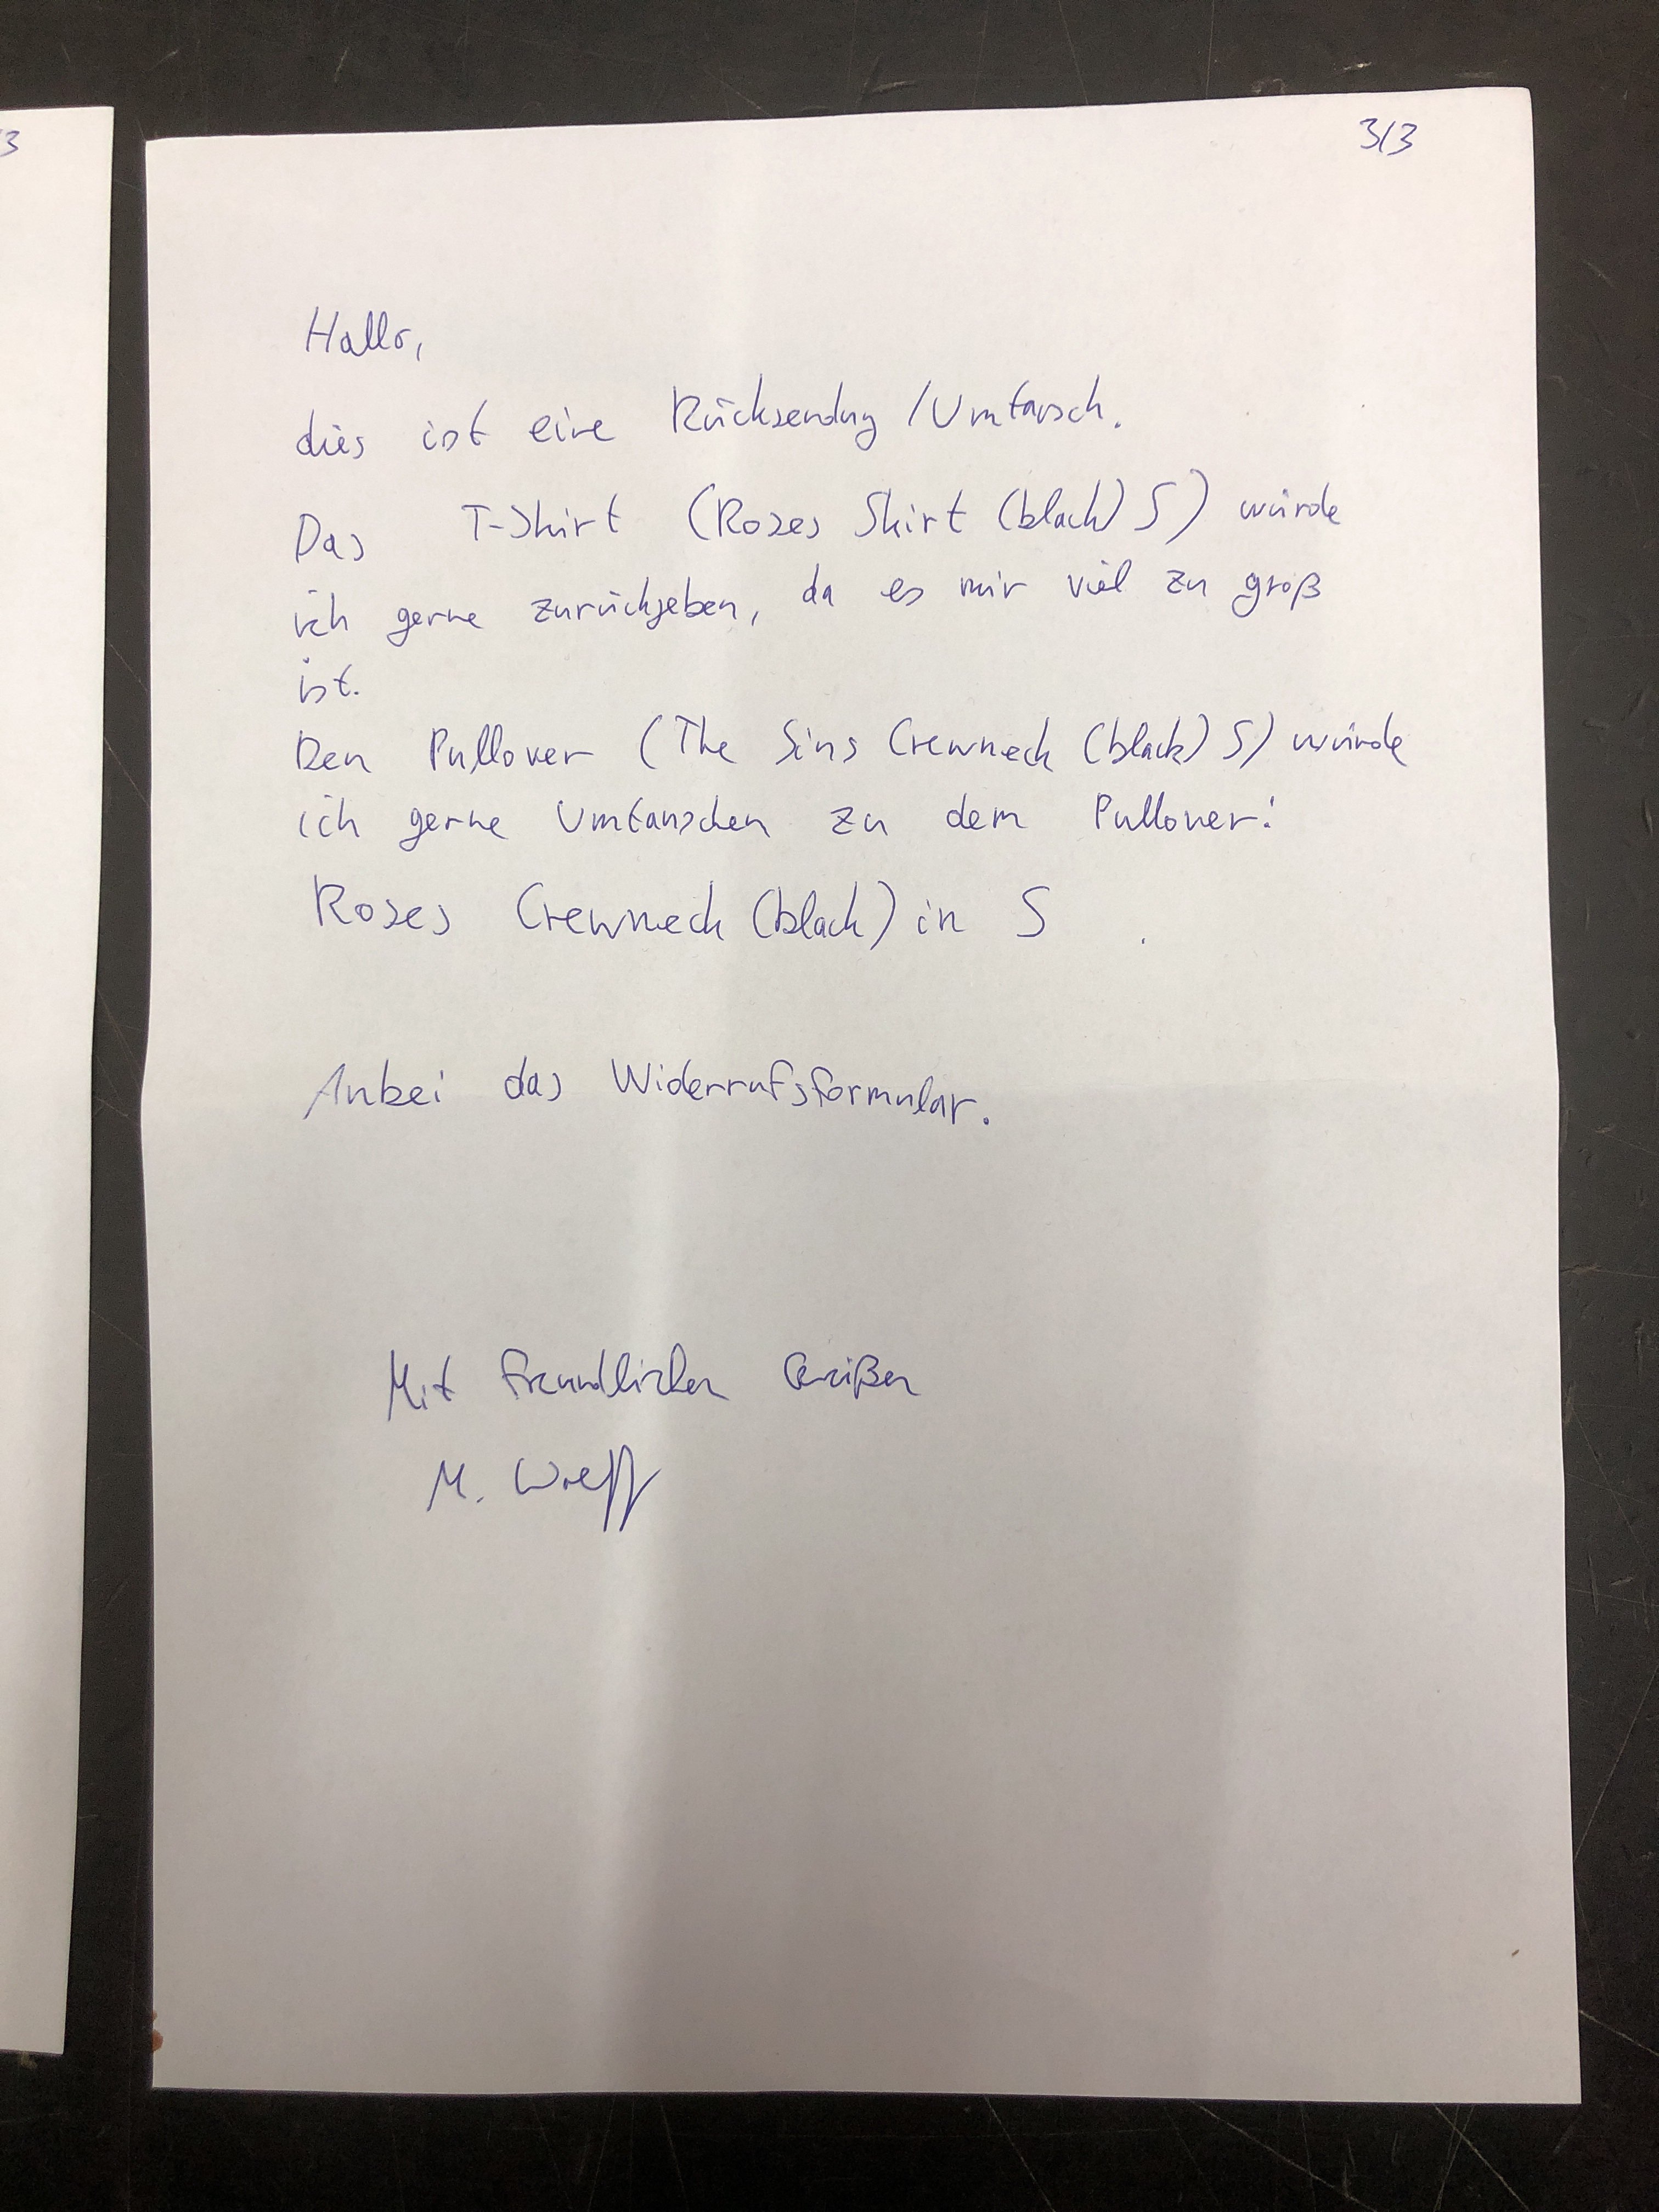 3
3/3
Hallo,
dies ist eine Rücksendung / Umtausch.
Das T-Shirt (Roses Shirt (black) S) würde
ich gerne zurückgeben, da es mir viel zu groß
ist.
Den Pullover (The Sins Crewneck (black) S) würde
ich gerne Umtauschen zu dem Pullover:
Roses Crewneck (black) in S
Anbei das Widerrufsformular.
Mit freundlichen Grüßen
M.